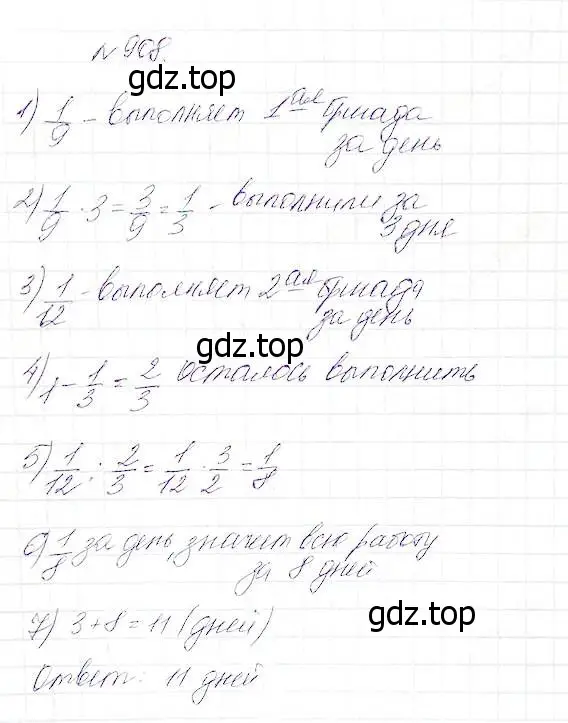 № 908.
gdz.top
1) 1/9 - выполняет 1ая бригада
за день
2) 1/9 · 3 = 3/9 = 1/3 - выполнили за
3 дня
3) 1/12 - выполняет 2ая бригада
за день
gdz.top
4) 1 - 1/3 = 2/3 осталось выполнить
5) 1/12 : 2/3 = 1/12 · 3/2 = 1/8
6) 1/8 за день, значит всю работу
за 8 дней
gdz.top
7) 3 + 8 = 11 (дней)
Ответ: 11 дней